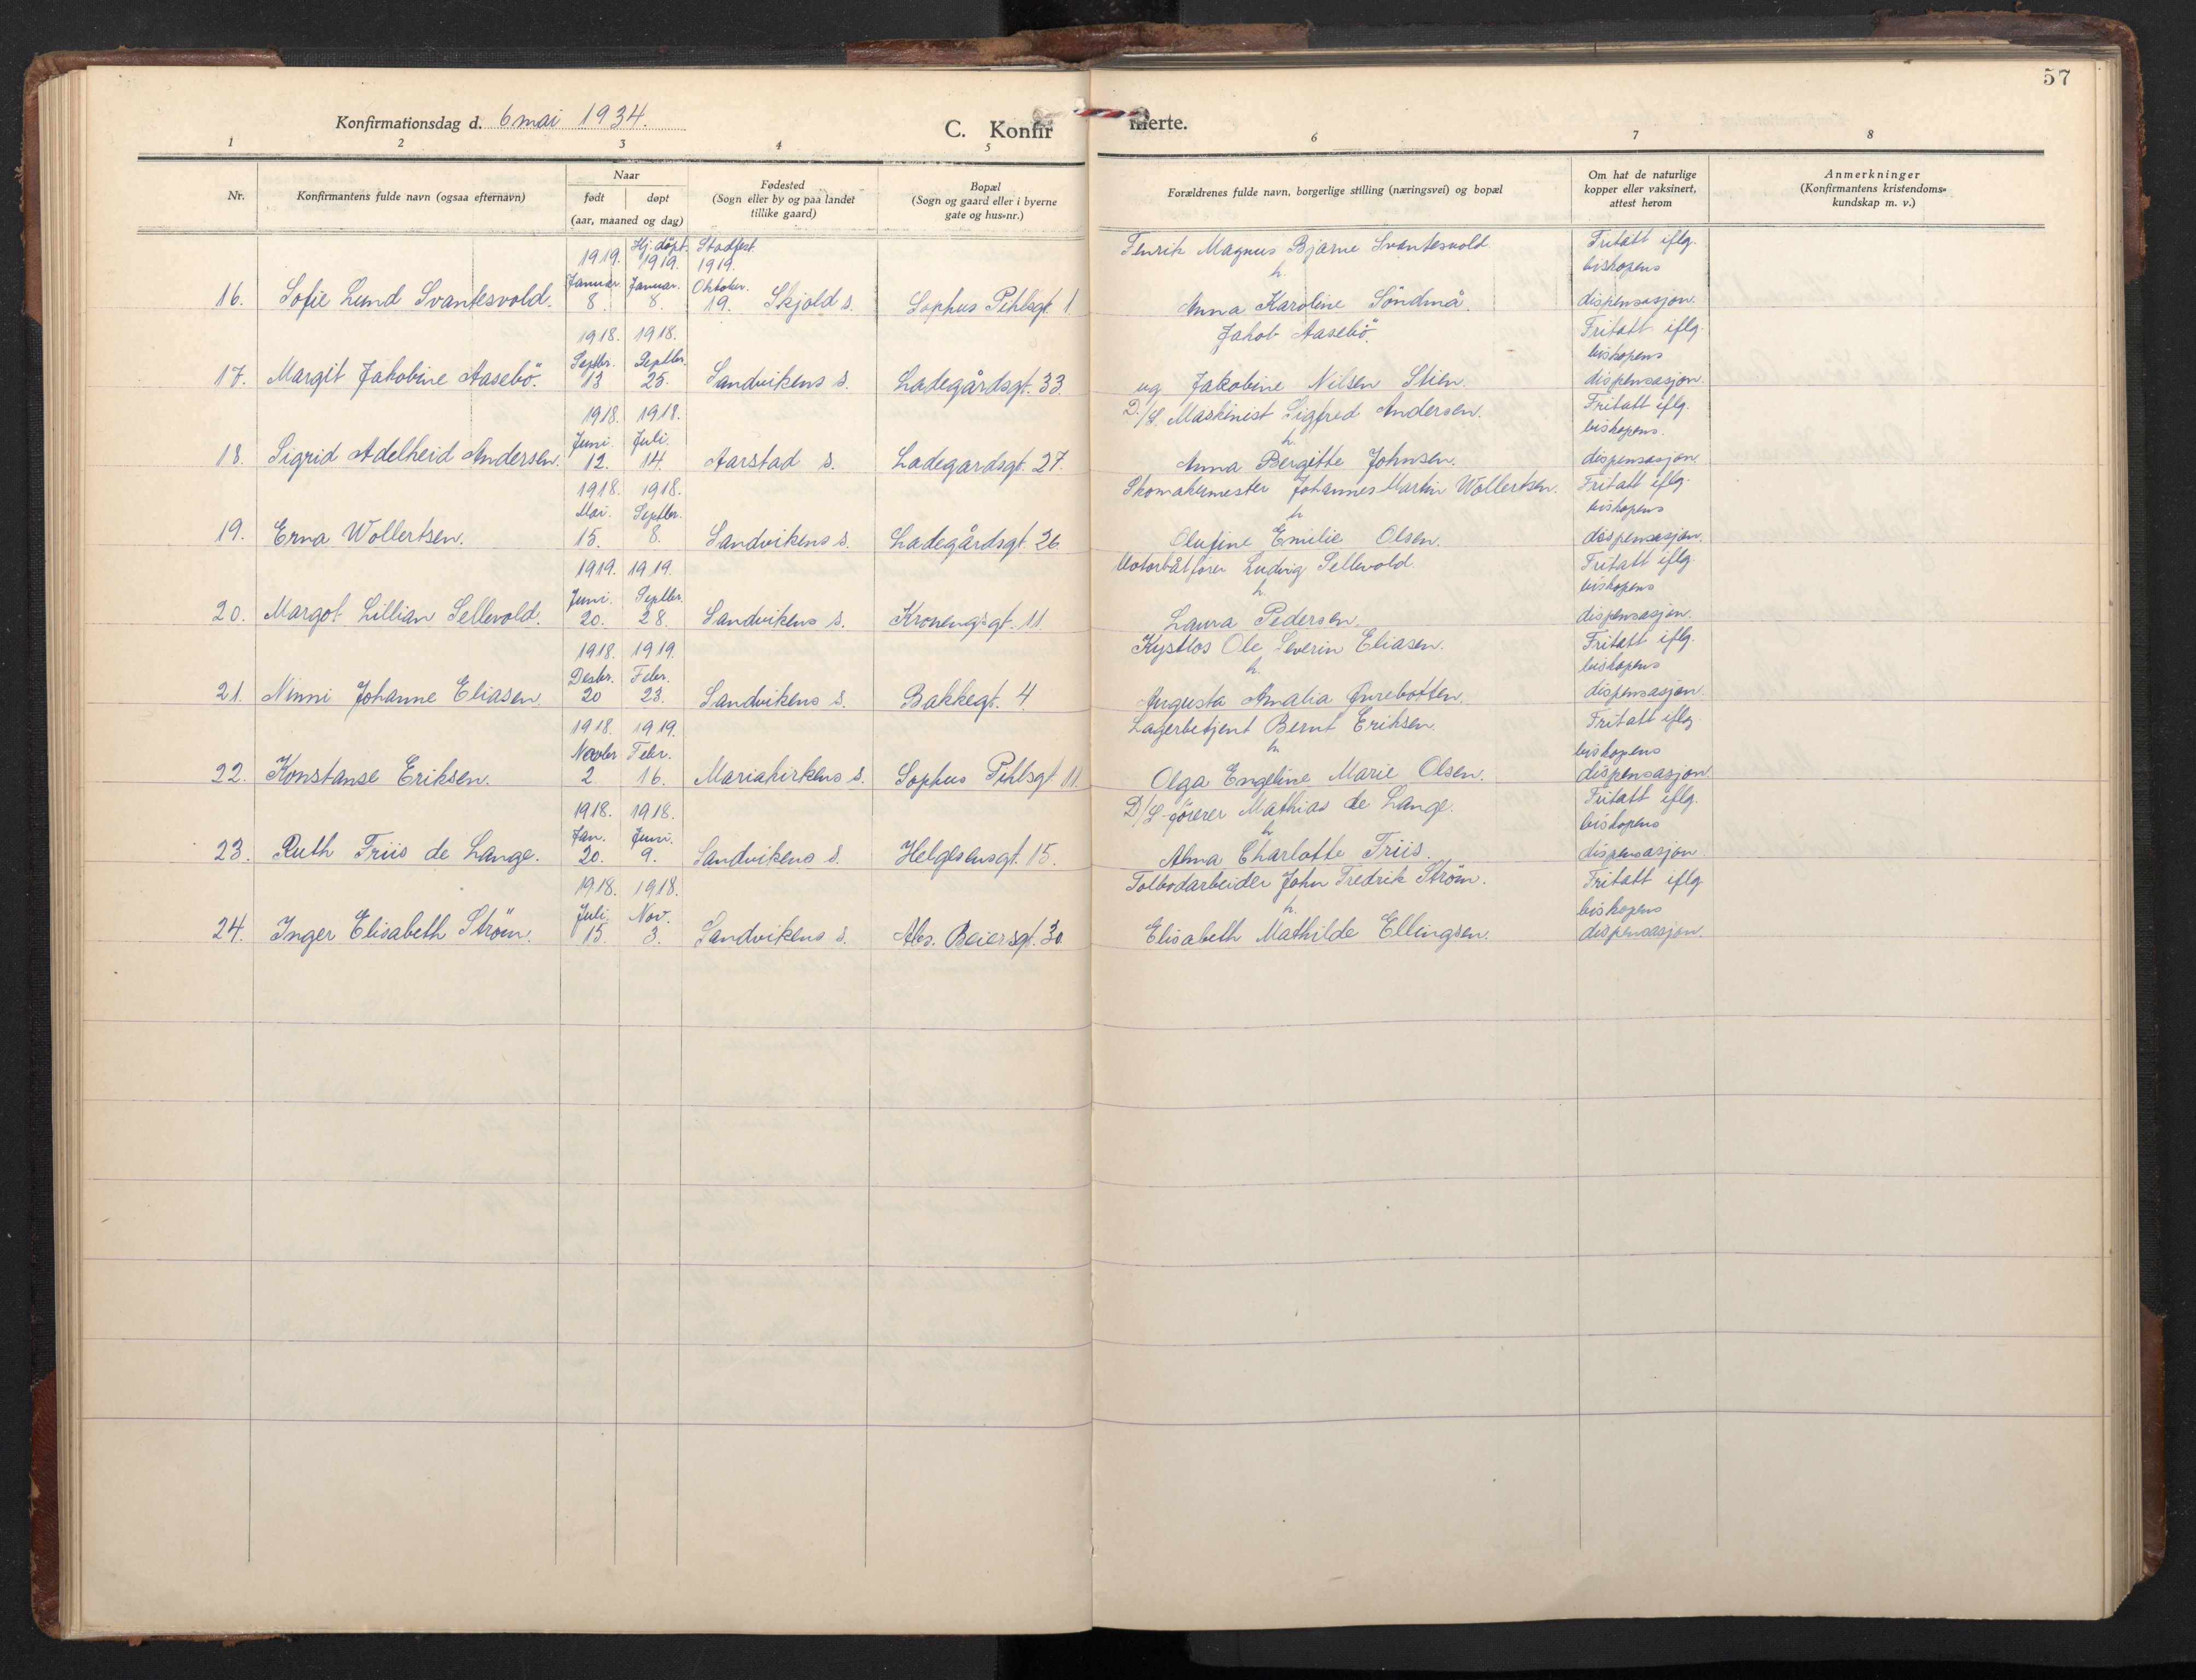 57
Konfirmationsdag d. 6 mai 1934.
C. Konfirmerte.
1 2 3 4 5 6 7 8
Nr.
Konfirmantens fulde navn (ogsaa efternavn)
Naar
født døpt
(aar, maaned og dag)
Fødested
(Sogn eller by og paa landet
tillike gaard)
Bopæl
(Sogn og gaard eller i byerne
gate og hus=nr.)
Forældrenes fulde navn, borgerlige stilling (næringsvei) og bopæl
Om hat de naturlige
kopper eller vaksinert,
attest herom
Anmerkninger
(Konfirmantens kristendoms=
kundskap m. v.)
Hj. döpt. Stadfest. Fenrik Magnus Bjarne Svantesvold. Fritatt iflg.
1919. 1919. 1919. h. biskopens
Januar. Januar. Oktober.
16. Sofie Lund Svantesvold. 8. 8. 19. Skjold s. Sophus Pihlsgt. 1. Anna Karoline Söndmå. dispensasjon.
1918. 1918. Jakob Aasebö. Fritatt iflg.
Septbr. Septbr. biskopens
17. Margit Jakobine Aasebö. 13 25. Sandvikens s. Ladegårdsgt. 33. og Jakobine Nilsen Stien. dispensasjon.
1918. 1918. D./S. Maskinist Sigfred Andersen. Fritatt iflg.
Juni. Juli. h. biskopens.
18. Sigrid Adelheid Andersen. 12. 14. Aarstad s. Ladegardsgt. 27. Anna Bergitte Johnsen. dispensasjon.
1918. 1918. Skomakermester Johannes Martin Wollertsen. Fritatt iflg.
Mai. Septbr. h biskopens
19. Erna Wollertsen. 15. 8. Sandvikens s. Ladegårdsgt. 26. Olufine Emilie Olsen. dispensasjon.
1919. 1919. Motorbåtfører Ludvig Sellevold. Fritatt iflg.
Juni. Septbr. h. biskopens
20. Margot Lillian Sellevold. 20. 28. Sandvikens s. Kronengsgt. 11. Laura Pedersen. dispensasjon.
1918. 1919. Kystlos Ole Severin Eliasen. Fritatt iflg.
Desbr. Febr. h. biskopens
21. Ninni Johanne Eliasen. 20 23. Sandvikens s. Bakkegt. 4. Augusta Amalia Aurebotten. dispensasjon
1918. 1919. Lagerbetjent Bernt Eriksen. Fritatt iflg
Novbr Febr. h biskopens
22. Konstanse Eriksen. 2. 16. Mariakirkens s. Sophus Pihlsgt 11. Olga Engeline Marie Olsen. dispensasjon
1918. 1918. D/S-förerer Mathias de Lange. Fritatt iflg.
Jan. Juni. h biskopens
23. Ruth Friis de Lange. 20. 9. Sandvikens s. Helgesensgt. 15. Alma Charlotte Friis. dispensasjon.
1918. 1918. Tolbodarbeider John Fredrik Ström. Fritatt iflg
Juli. Nov. h. biskopens
24. Inger Elisabeth Ström. 15. 3. Sandvikens s. Abs. Beiersgt. 30. Elisabeth Mathilde Ellingsen. dispensasjon.